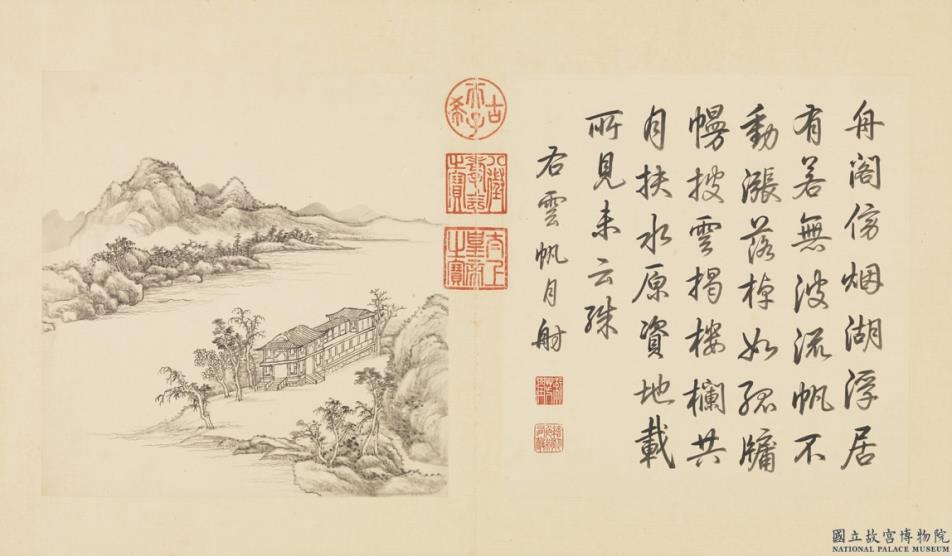 舟閣傍烟湖浮居
有若無波流帆不
動漲落棹如孤牗
幔披雲揭樓欄共
月扶水原資地載
所見未云殊
右雲帆月舫
古希天子
八徵耄念之寶
太上皇帝之寶
國立故宮博物院
NATIONAL PALACE MUSEUM